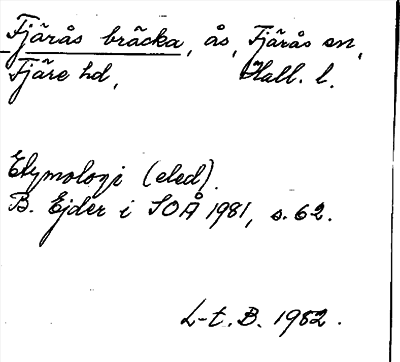 Fjärås bräcka, ås, Fjärås sn,
Fjäre hd, Hall. l.
Etymologi (eled).
B. Ejder i SOÅ 1981, s. 62.
L-t. B. 1982.